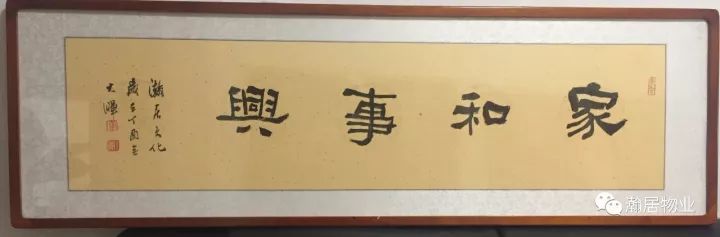 家和事興
瀚居文化
歲在丁酉
大
瀚居物业